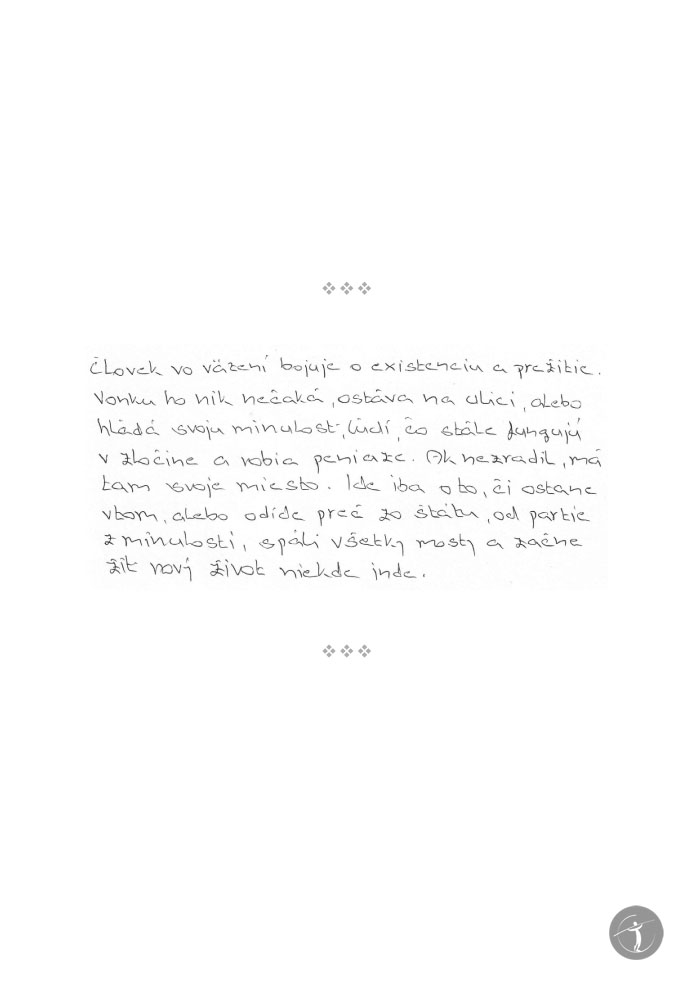 Človek vo väzení bojuje o existenciu a prežitie.
Vonku ho nik nečaká, ostáva na ulici, alebo
hľadá svoju minulosť, ľudí, čo stále fungujú
v zločine a robia peniaze. Ak nezradil, má
tam svoje miesto. Ide iba o to, či ostane
vtom, alebo odíde preč zo štátu, od partie
z minulosti, spáli všetky mosty a začne
žiť nový život niekde inde.